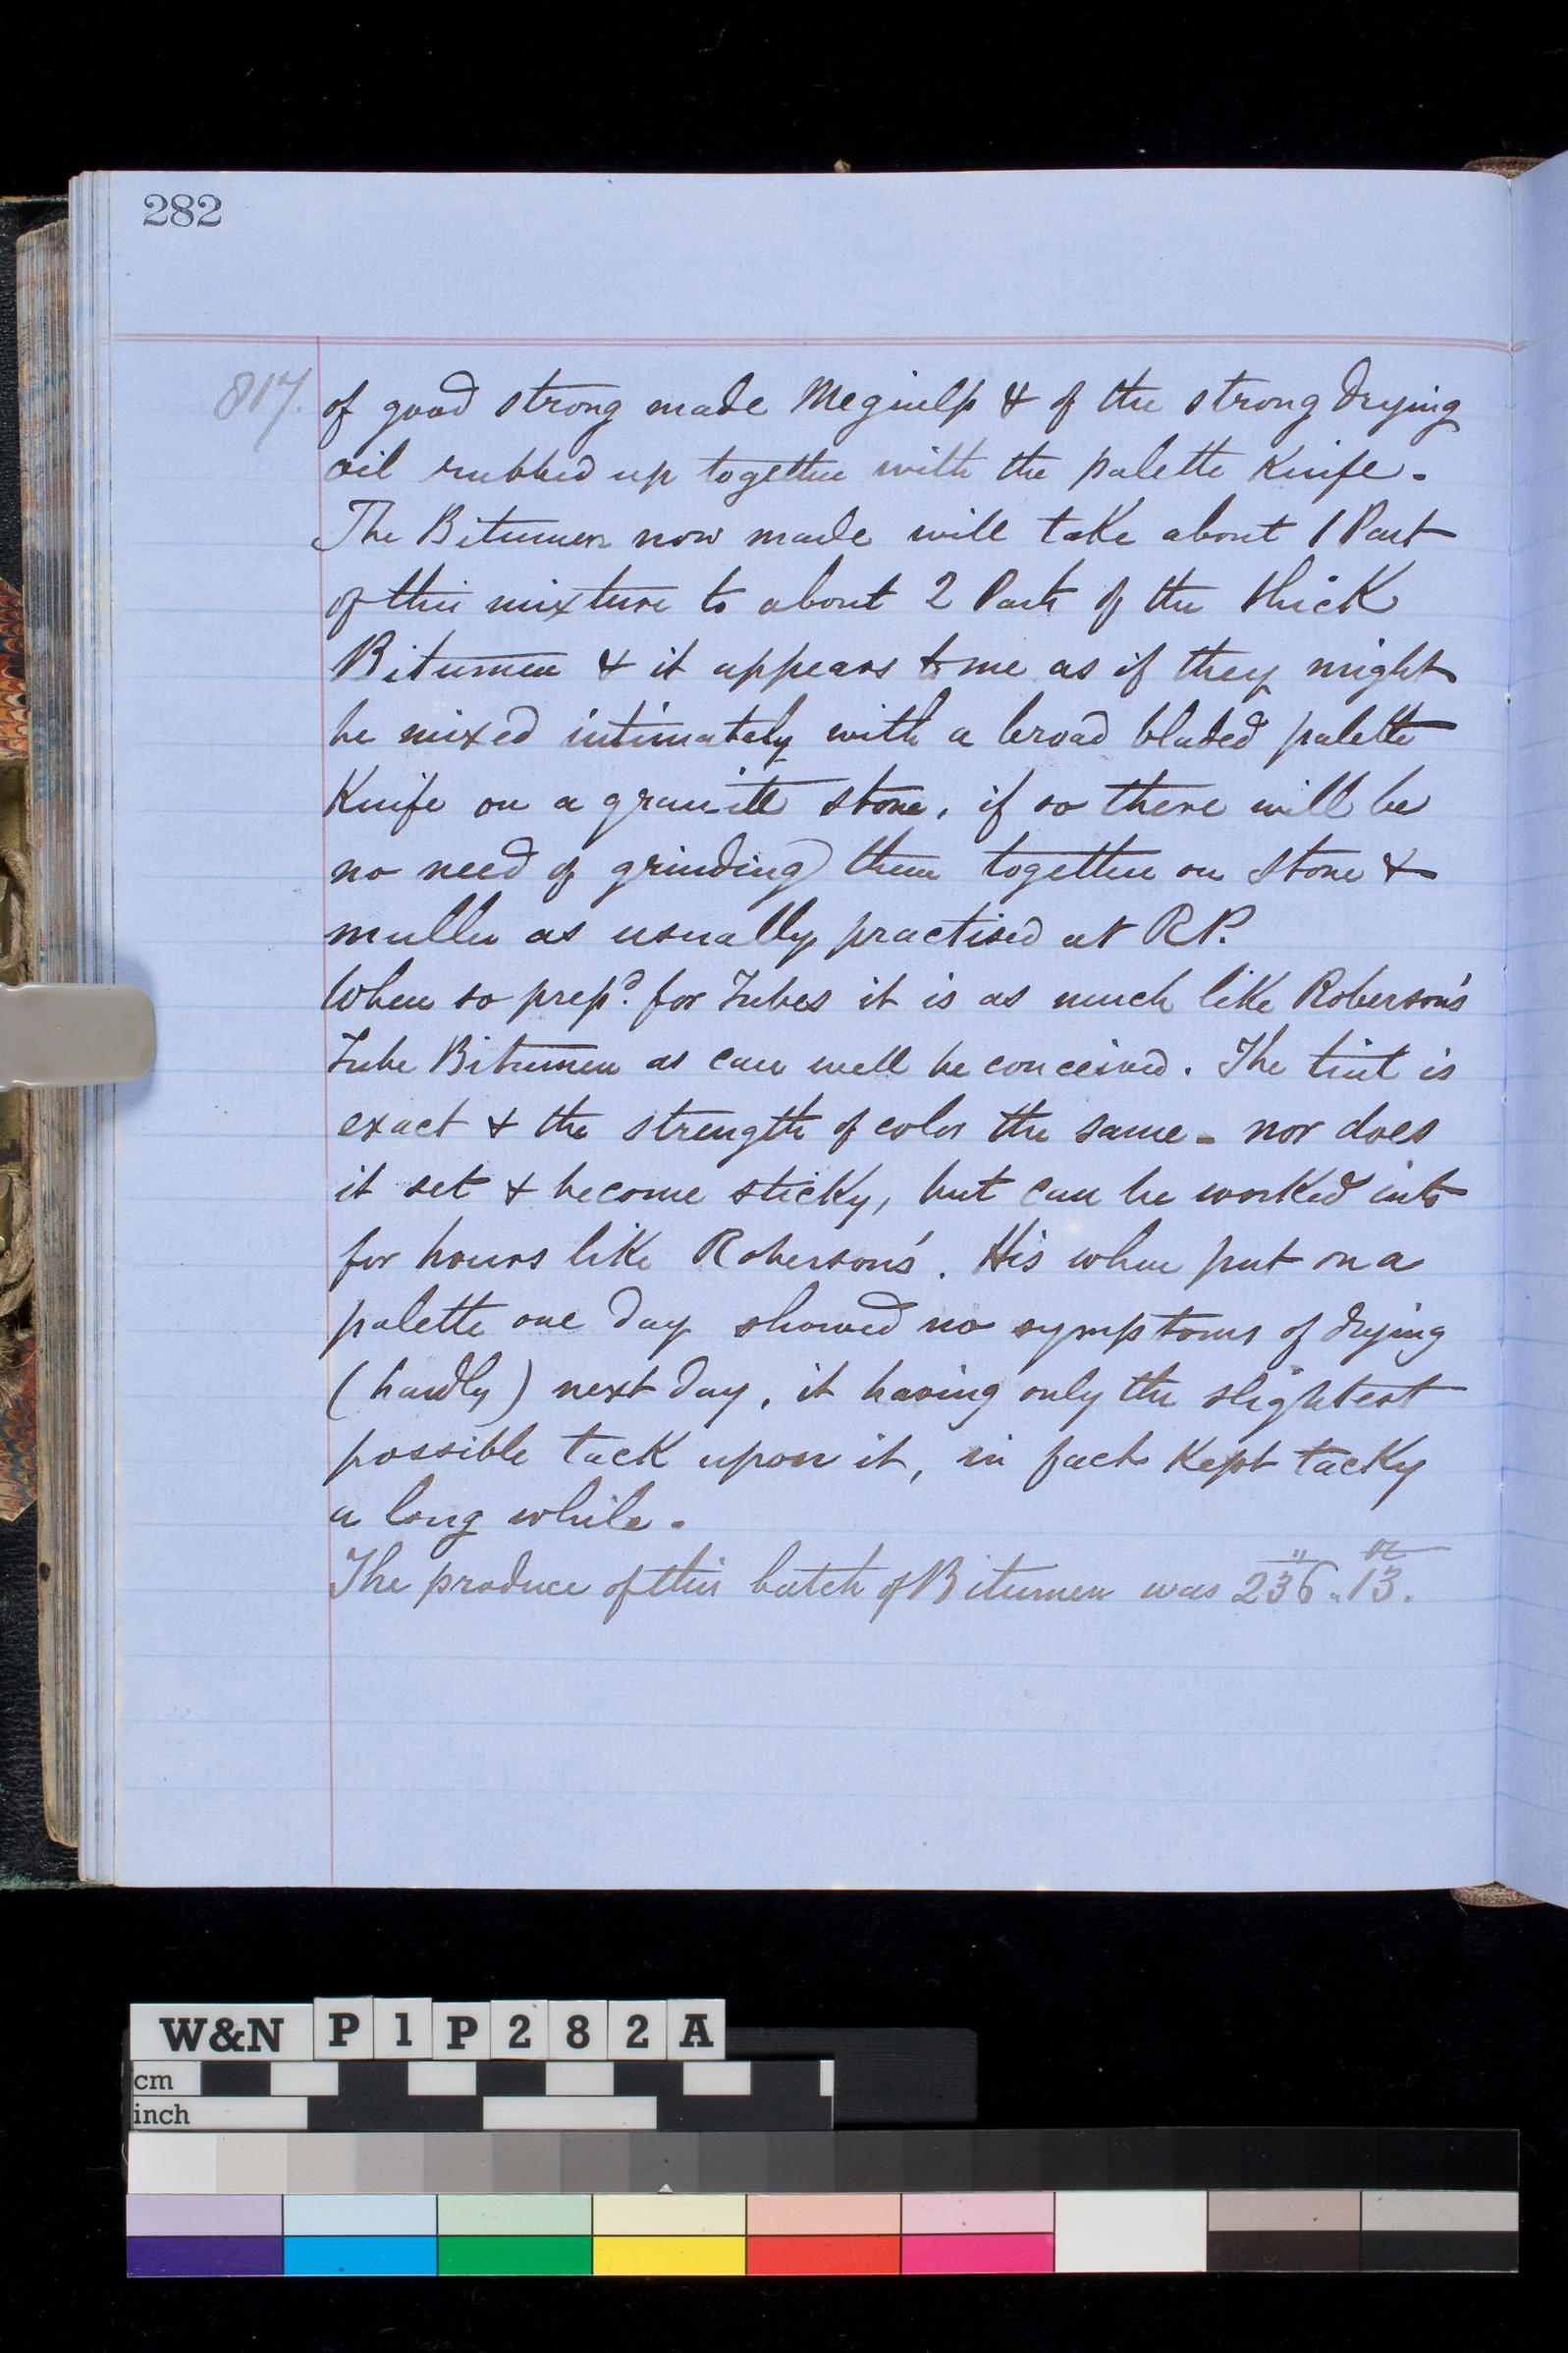 282
817.
of good strong made Meguilp & of the strong drying
oil rubbed up together with the palette Knife.
The Bitumen now made will take about 1 Part
of this mixture to about 2 Parts of the thick
Bitumen & it appears to me as if they might
be mixed intimately with a broad bladed palette
Knife on a granite stone, if so there will be
no need of grinding them together on stone &
muller as usually practised at RP.
When so prepd. for Tubes it is as much like Roberson's
Tube Bitumen as can well be conceived. The tint is
exact & the strength of color the same - nor does
it set & become sticky, but can be worked into
for hours like Roberson's. His when put on a
palette one day showed no symptoms of drying
(hardly) next day, it having only the slightest
possible tack upon it, in fact kept tacky
a long while.
The produce of this batch of Bitumen was 236" .. 13 oz.
W&N P1P282A
cm
inch